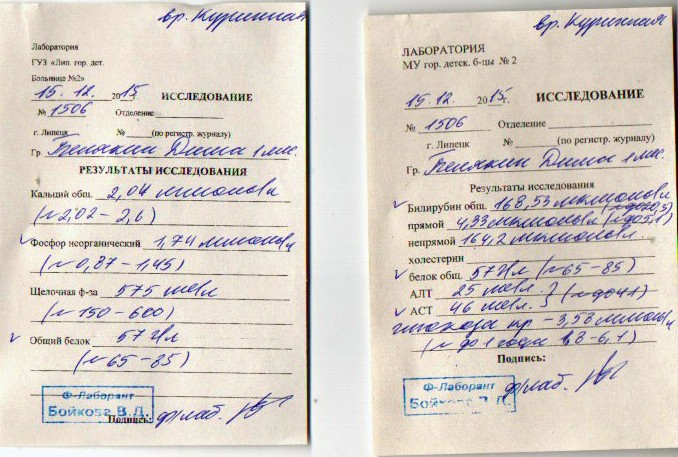 вр. Куринная
Лаборатория
ГУЗ «Лип. гор. дет.
Больница №2»
15.12. 2015
ИССЛЕДОВАНИЕ
№ 1506 Отделение
г. Липецк № (по регистр. журналу)
Гр. Дима 1 мес.
РЕЗУЛЬТАТЫ ИССЛЕДОВАНИЯ
Кальций общ. 2,04 ммоль/л
(N 2,02 – 2,6)
Фосфор неорганический 1,74 ммоль/л
(N 0,87 – 1,45)
Щелочная ф-за 575 ме/л
(N 150 – 600)
Общий белок 57 г/л
(N 65 – 85)
Ф-Лаборант
Бойкова В.Д.
Подпись: ф/лаб.
вр. Куринная
ЛАБОРАТОРИЯ
МУ гор. детск. б-цы № 2
15.12. 2015г. ИССЛЕДОВАНИЕ
№ 1506 Отделение
г. Липецк № (по регистр. журналу)
Гр. Дима 1 мес.
Результаты исследования
Билирубин общ. 168,53 мкмоль/л (N до 20,5)
прямой 4,33 мкмоль/л (N до 5,1)
непрямой 164,2 мкмоль/л
холестерин
белок общ. 57 г/л (N 65 – 85)
АЛТ 25 ме/л
АСТ 46 ме/л (N до 41)
глюкоза – 3,58 ммоль/л
(N до 1 года – 6,1)
Подпись:
Ф-Лаборант
Бойкова В.Д.
ф/лаб.